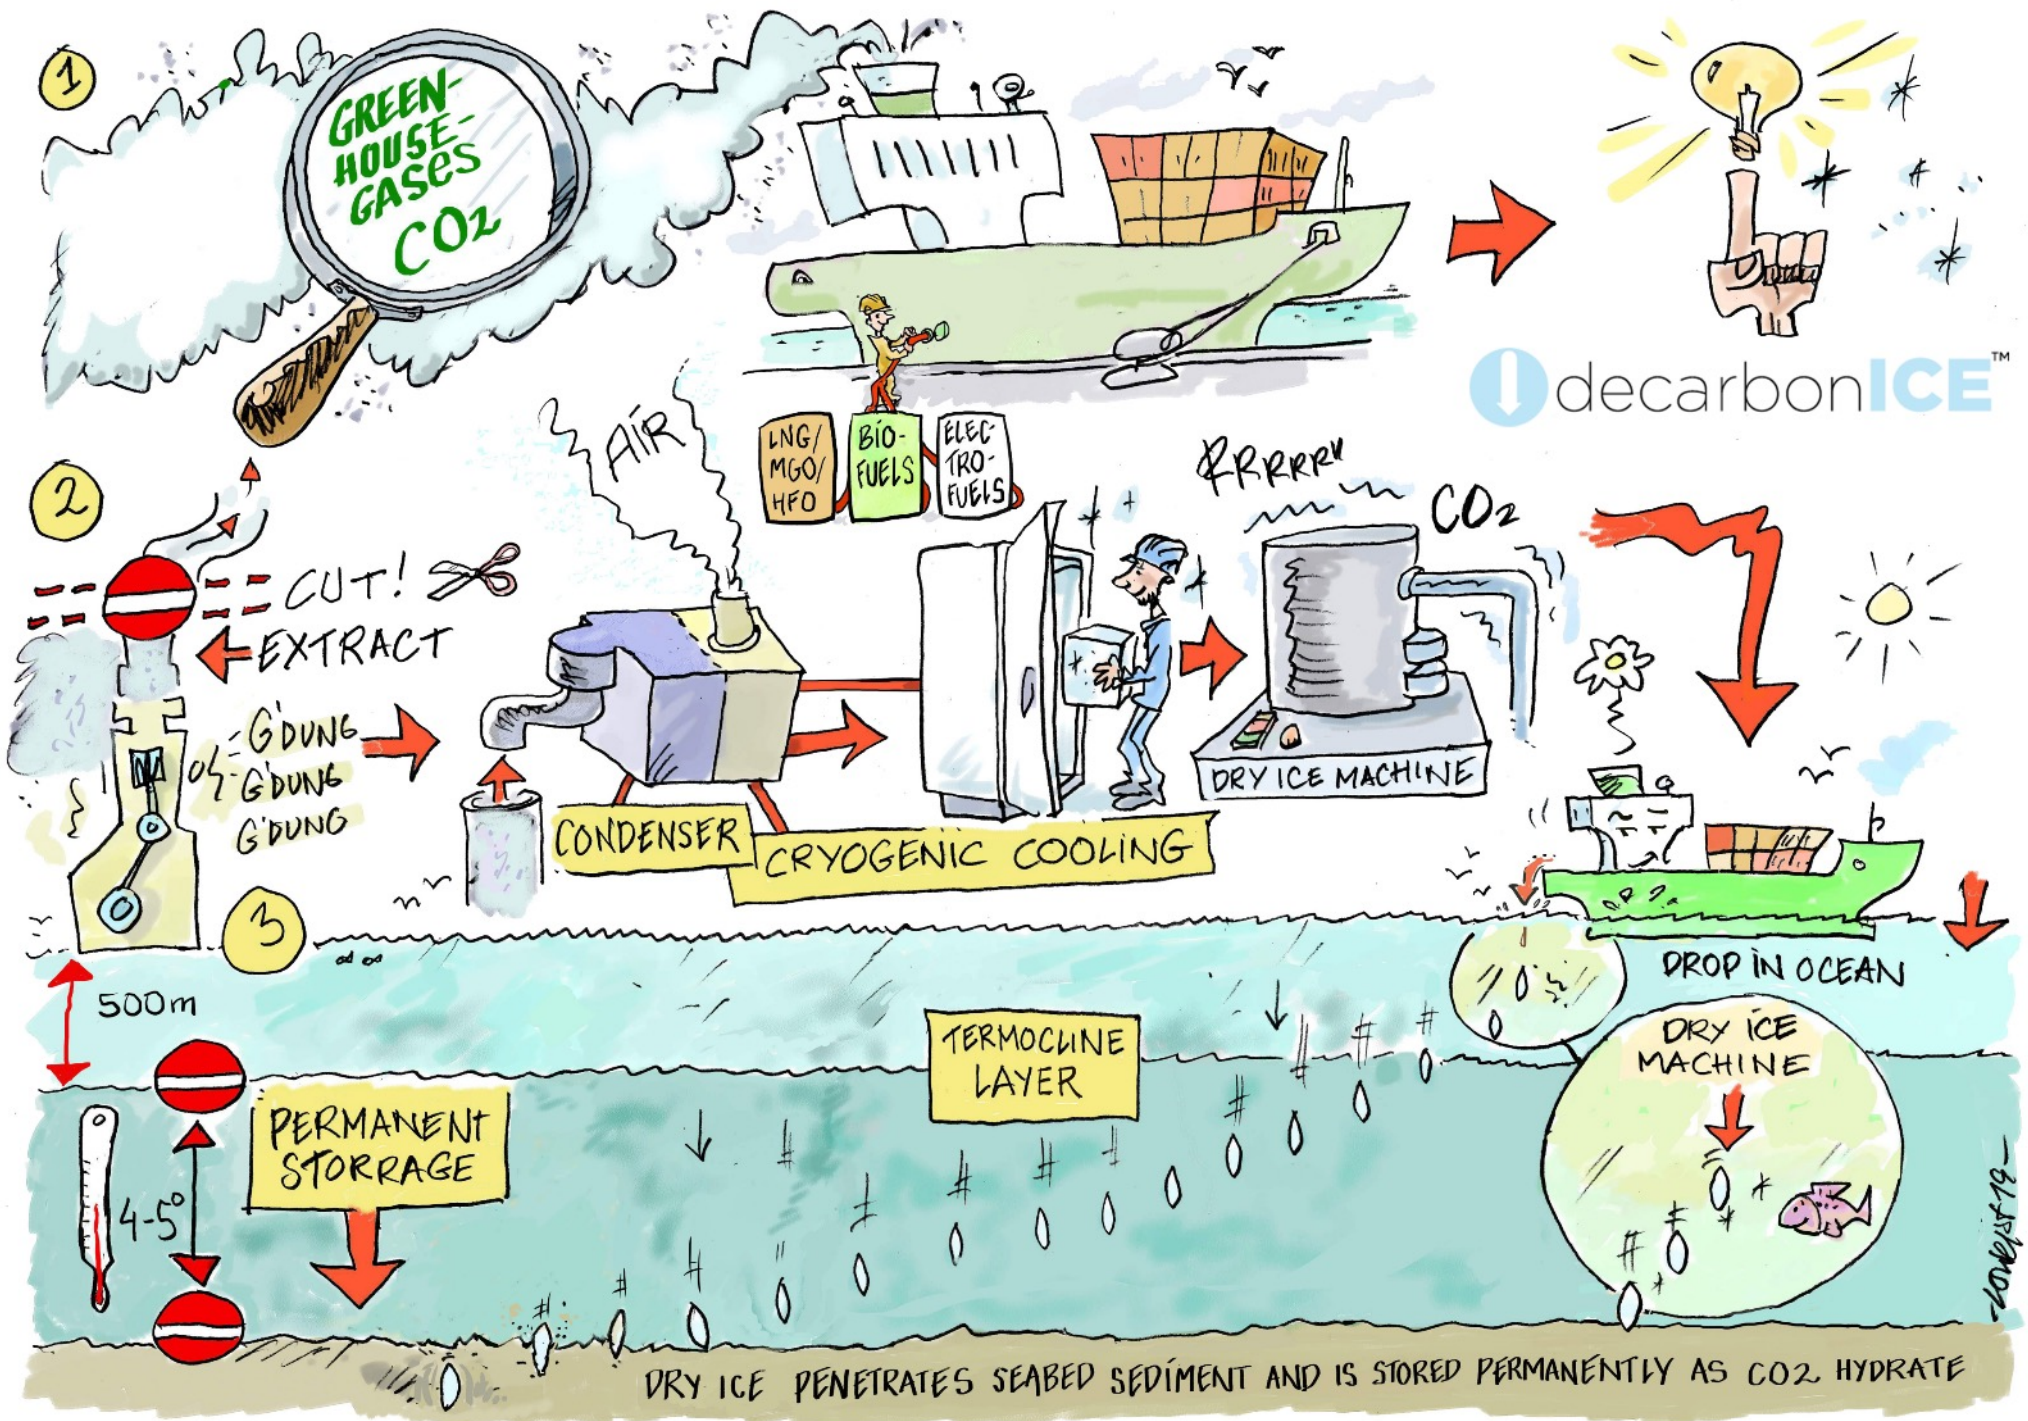 1
GREEN-
HOUSE-
GASES
CO2
decarbonICE™
2
AIR
LNG/
MGO/
HFO
BIO-
FUELS
ELEC-
TRO-
FUELS
RRRRRR
CO2
CUT!
EXTRACT
G'DUNG
G'DUNG
G'DUNG
CONDENSER
CRYOGENIC COOLING
DRY ICE MACHINE
3
500m
DROP IN OCEAN
TERMOCLINE
LAYER
DRY ICE
MACHINE
PERMANENT
STORRAGE
4-5°
DRY ICE PENETRATES SEABED SEDIMENT AND IS STORED PERMANENTLY AS CO2 HYDRATE